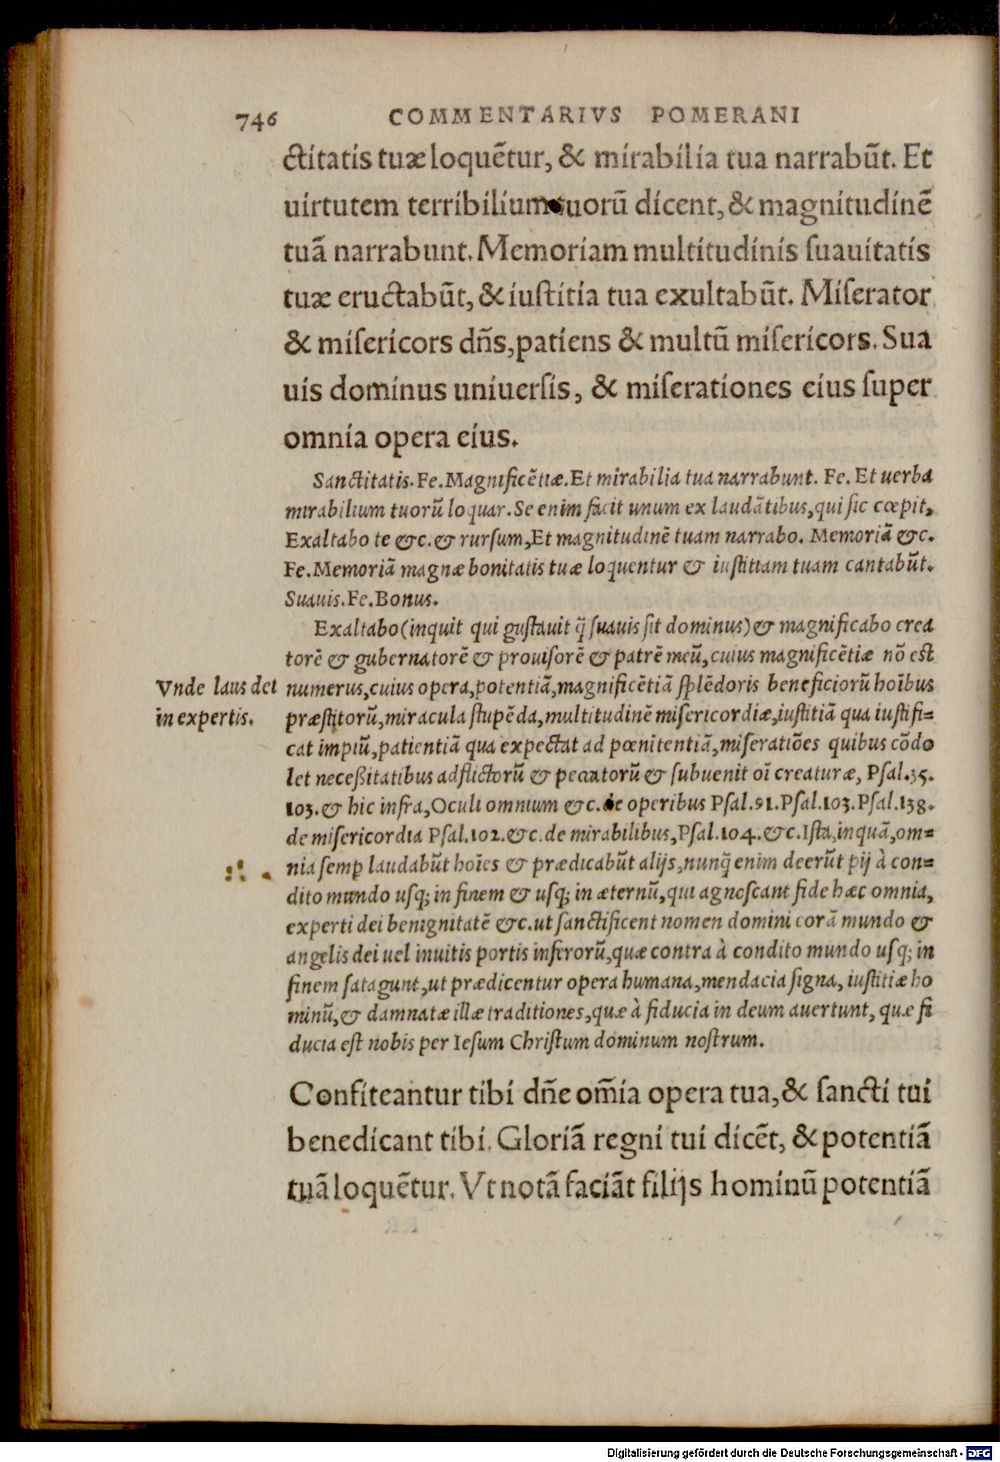 746 COMMENTARIVS POMERANI
ctitatis tuæ loquẽtur, & mirabilia tua narrabũt. Et
uirtutem terribilium tuorũ dicent, & magnitudinẽ
tuã narrabunt. Memoriam multitudinis ſuauitatis
tuæ eructabũt, & iuſtitia tua exultabũt. Miſerator
& miſericors dñs, patiens & multũ miſericors. Sua
uis dominus uniuerſis, & miſerationes eius ſuper
omnia opera eius.
Sanctitatis. Fe. Magnificẽtiæ. Et mirabilia tua narrabunt. Fe. Et uerba
mirabilium tuorũ loquar. Se enim facit unum ex laudãtibus, qui ſic cœpit,
Exaltabo te &c. & rurſum, Et magnitudinẽ tuam narrabo. Memoriã &c.
Fe. Memoriã magnæ bonitatis tuæ loquentur & iuſtitiam tuam cantabũt.
Suauis. Fe. Bonus.
Exaltabo (inquit qui guſtauit q̃ ſuauis ſit dominus) & magnificabo crea
torẽ & gubernatorẽ & prouiſorẽ & patrẽ meũ, cuius magnificẽtiæ nõ eſt
Vnde laus dei
numerus, cuius opera, potentiã, magnificẽtiã ſplẽdoris beneficiorũ hoĩbus
in expertis.
præſtitorũ, miracula ſtupẽda, multitudinẽ miſericordiæ, iuſtitiã qua iuſtifi=
cat impiũ, patientiã qua expectat ad pœnitentiã, miſeratiões quibus cõdo
let neceßitatibus adflictorũ & peccatorũ & ſubuenit oĩ creaturæ, Pſal. 35.
103. & hic infra, Oculi omnium &c. de operibus Pſal. 91. Pſal. 103. Pſal. 138.
de miſericordia Pſal. 102. &c. de mirabilibus, Pſal. 104. &c. Iſta, inquã, om=
nia ſemꝑ laudabũt hoĩes & prædicabũt alijs, nunq̃ enim deerũt pij à con=
dito mundo uſq; in finem & uſq; in æternũ, qui agnoſcant fide hæc omnia,
experti dei benignitatẽ &c. ut ſanctificent nomen domini corã mundo &
angelis dei uel inuitis portis inferorũ, quæ contra à condito mundo uſq; in
finem ſatagunt, ut prædicentur opera humana, mendacia ſigna, iuſtitiæ ho
minũ, & damnatæ illæ traditiones, quæ à fiducia in deum auertunt, quæ fi
ducia eſt nobis per Ieſum Chriſtum dominum noſtrum.
Confiteantur tibi dñe om̃ia opera tua, & ſancti tui
benedicant tibi. Gloriã regni tui dicẽt, & potentiã
tuã loquẽtur. Vt notã faciãt filijs hominũ potentiã
Digitalisierung gefördert durch die Deutsche Forschungsgemeinschaft - DFG